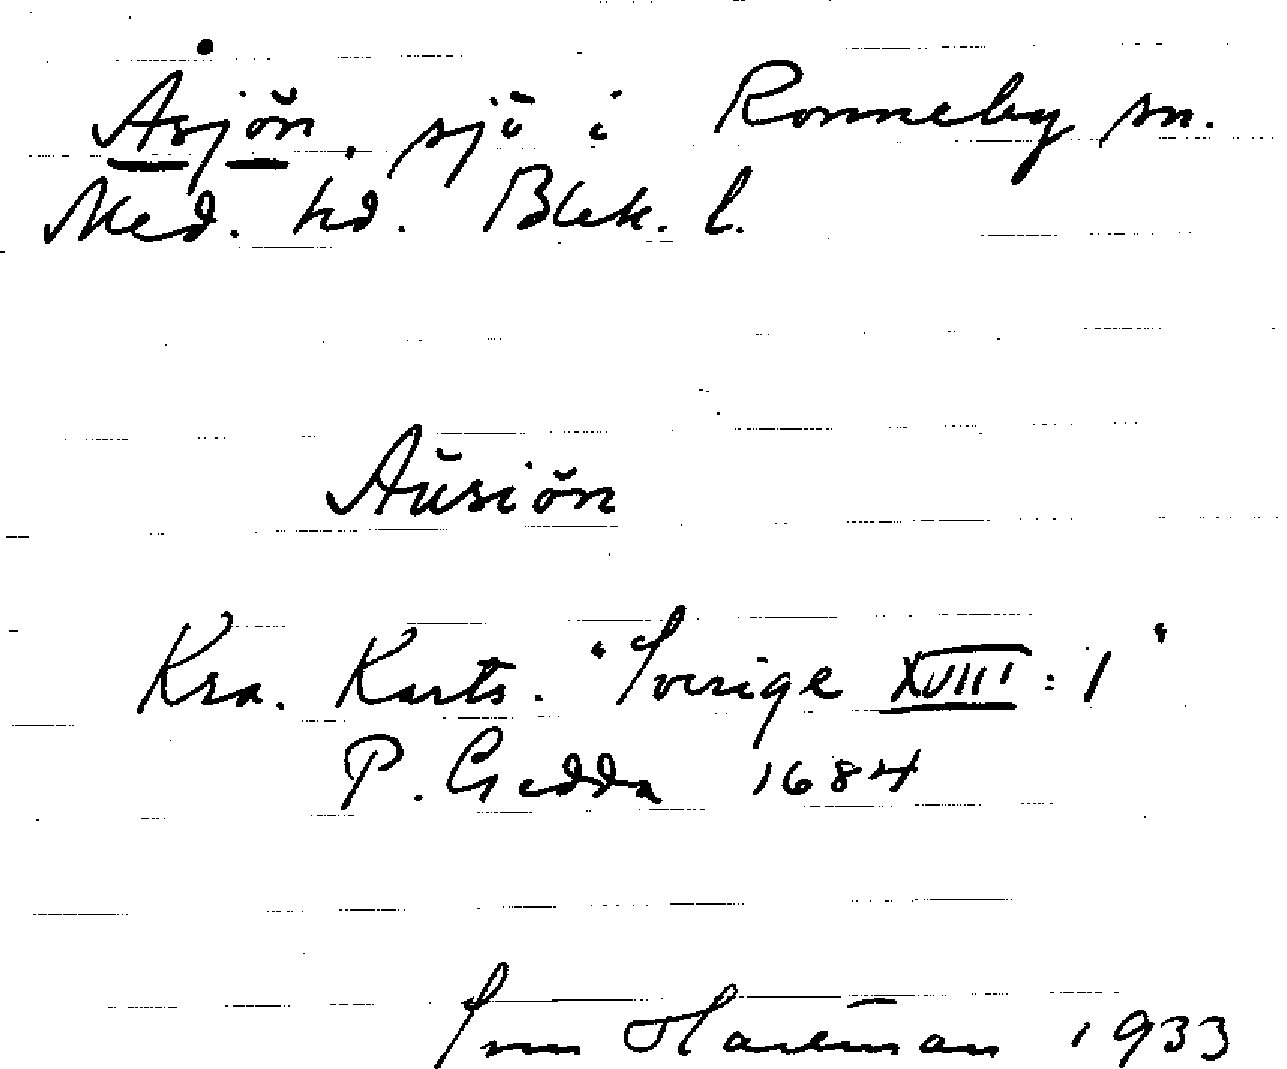 Åsjön, sjö i Ronneby sn.
Med. hd. Blek. l.
Aŭsiön
Kra. Karts. "Sverige XVIII: 1"
P. Gedda 1684
Sven Hartman 1933